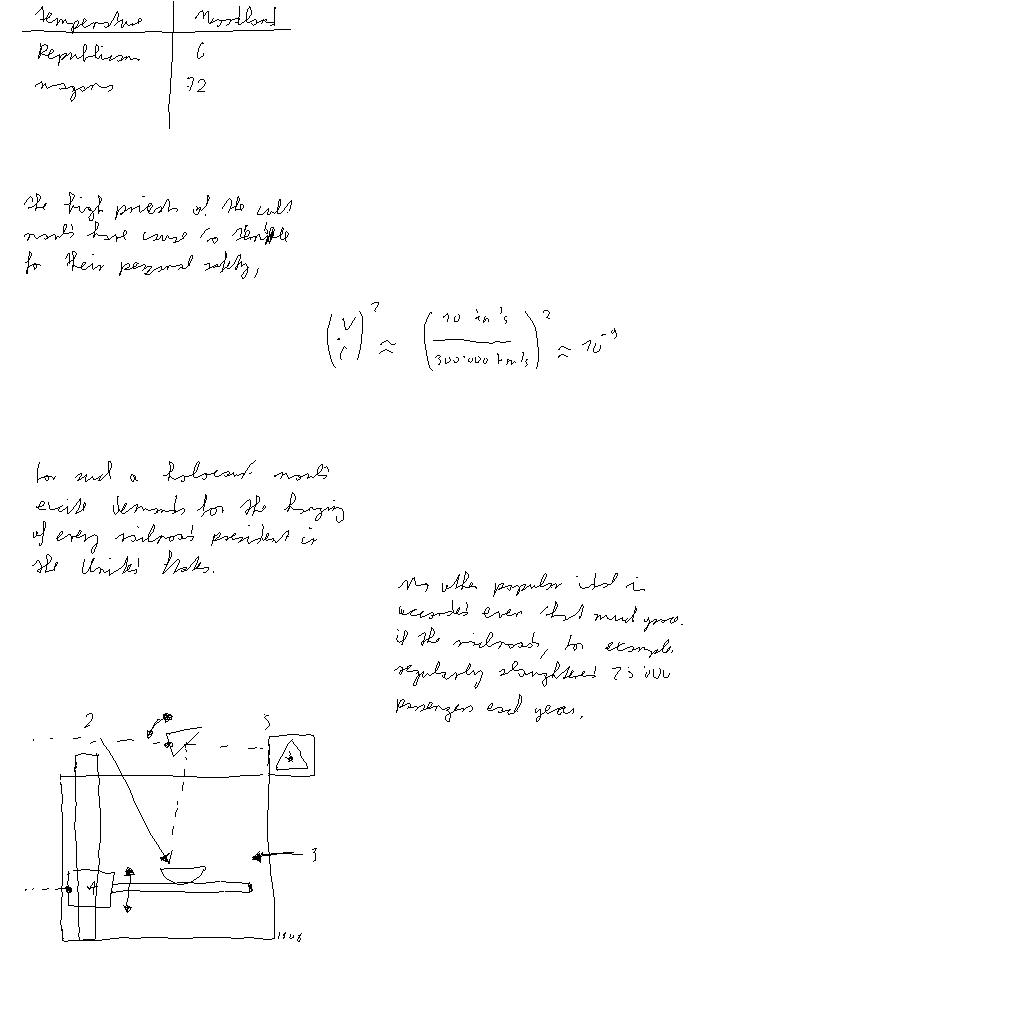 temperature Woodland
Republican 6
wagons 72
the high priests of the cult
would have cause to tremble
for their personal safety,
(v/c)² ≈ (10 km/s / 300.000 km/s)² ≈ 10⁻⁹
for such a holocaust would
excite demands for the hanging
of every railroad president in
the United States.
No other popular idol is
accorded even that much grace.
if the railroads, for example
regularly slaughtered 25'000
passengers each year,
2 5
3
4